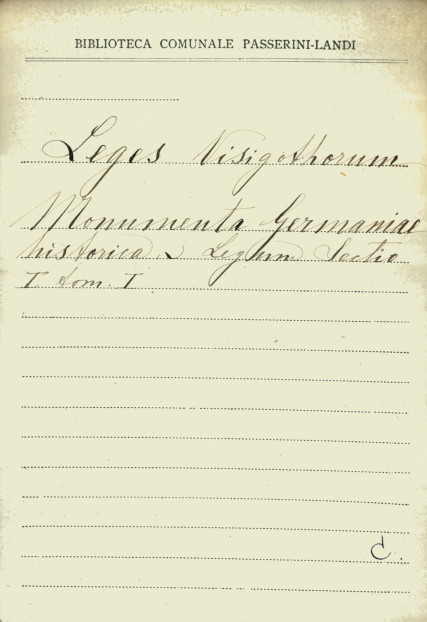 BIBLIOTECA COMUNALE PASSERINI-LANDI
Leges Visigothorum
Monumenta Germaniae
historica. Legum Sectio
I. tom. I
C.